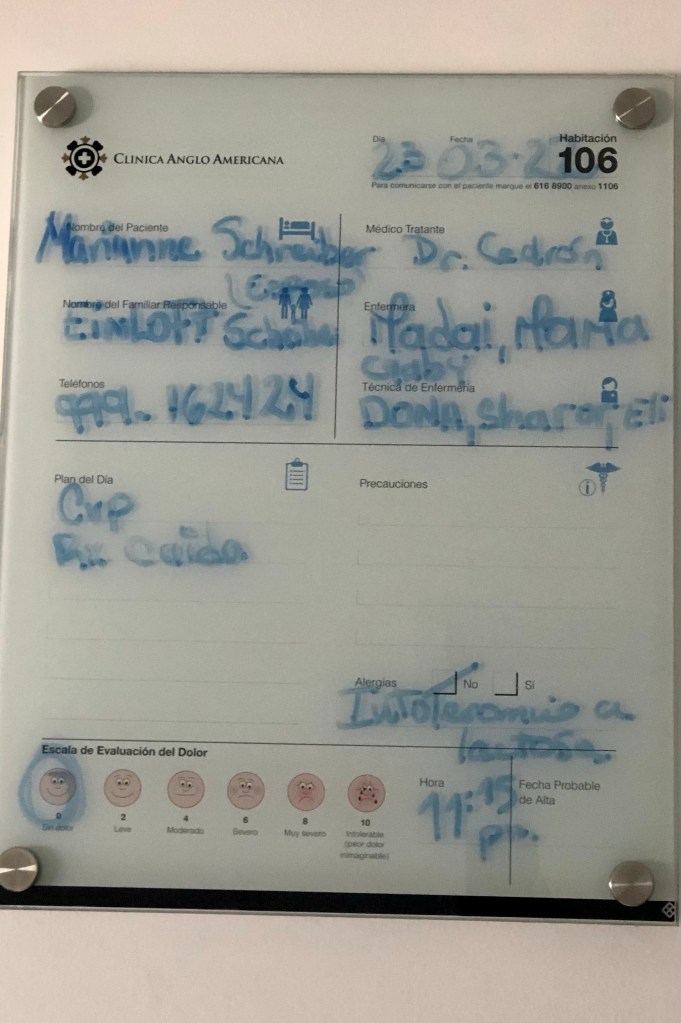 CLINICA ANGLO AMERICANA
Día Fecha Habitación
23 03 106
Para comunicarse con el paciente marque el 616 8900 anexo 1106
Nombre del Paciente
Marianne Schreiber
(Esposo)
Nombre del Familiar Responsable
Teléfonos
999. 162424
Médico Tratante
Dr. Cedrón
Enfermera
Madai, Mama
Gaby
Técnica de Enfermería
DONA, Sharon, Eli
Plan del Día
Cvp
Rx caida
Precauciones
Alergias No Sí
Intolerancia a
lactosa.
Escala de Evaluación del Dolor
0 2 4 6 8 10
Sin dolor Leve Moderado Severo Muy severo Intolerable
(peor dolor
inimaginable)
Hora
11:15
pm.
Fecha Probable
de Alta